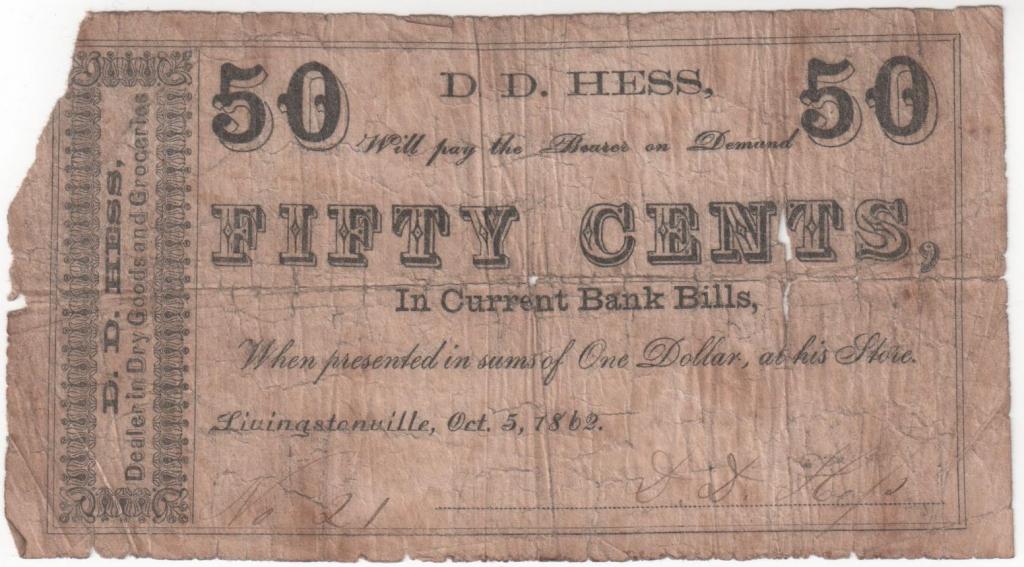 D. D. HESS,
Dealer in Dry Goods and Groceries
50 D. D. HESS, 50
Will pay the Bearer on Demand
FIFTY CENTS,
In Current Bank Bills,
When presented in sums of One Dollar, at his Store.
Livingstonville, Oct. 5, 1862.
No 21
D. D. Hess